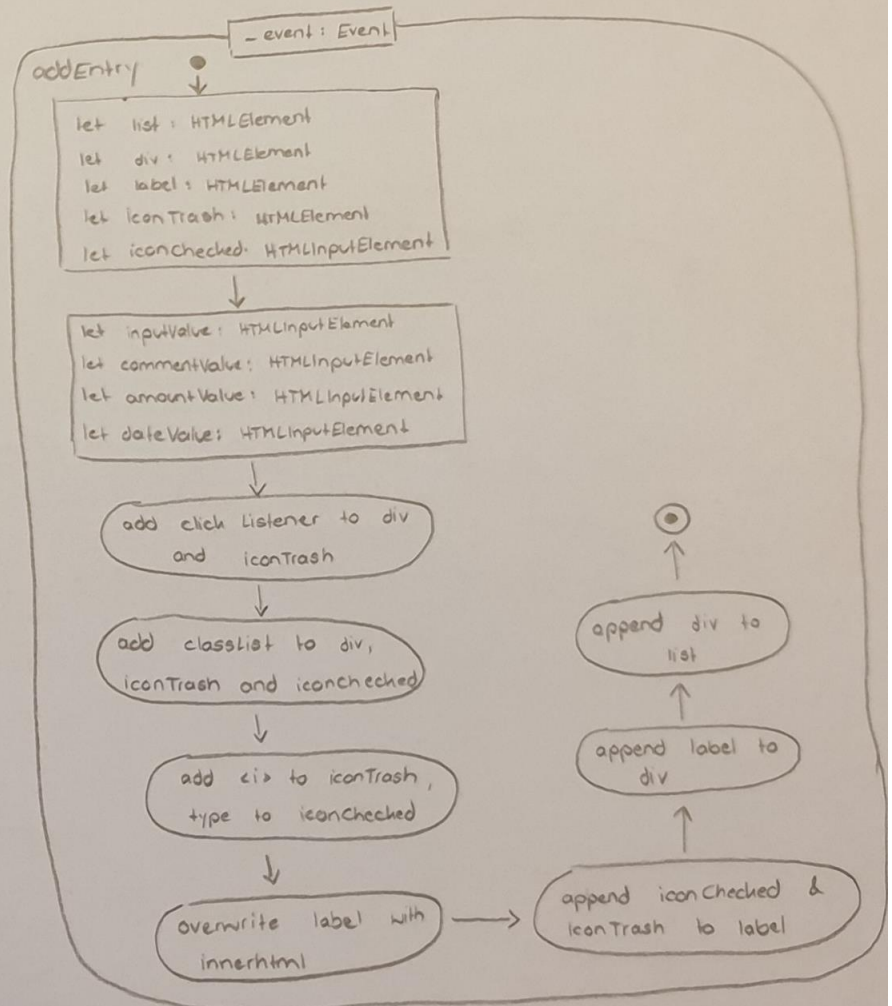 _event: Event
addEntry
let list: HTMLElement
let div: HTMLElement
let label: HTMLElement
let iconTrash: HTMLElement
let iconChecked: HTMLInputElement
let inputValue: HTMLInputElement
let commentValue: HTMLInputElement
let amountValue: HTMLInputElement
let dateValue: HTMLInputElement
add click Listener to div
and iconTrash
add classList to div,
iconTrash and iconchecked
add <i> to iconTrash,
type to iconChecked
overwrite label with
innerhtml
append iconChecked &
iconTrash to label
append label to
div
append div to
list